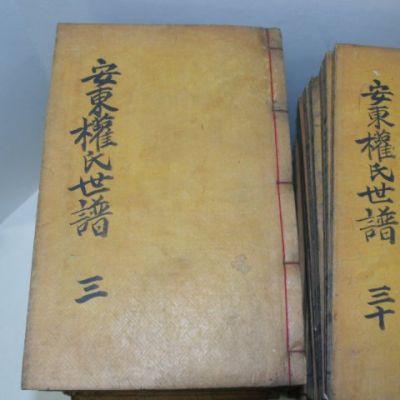 安東權氏世譜 三
安東權氏世譜 三十